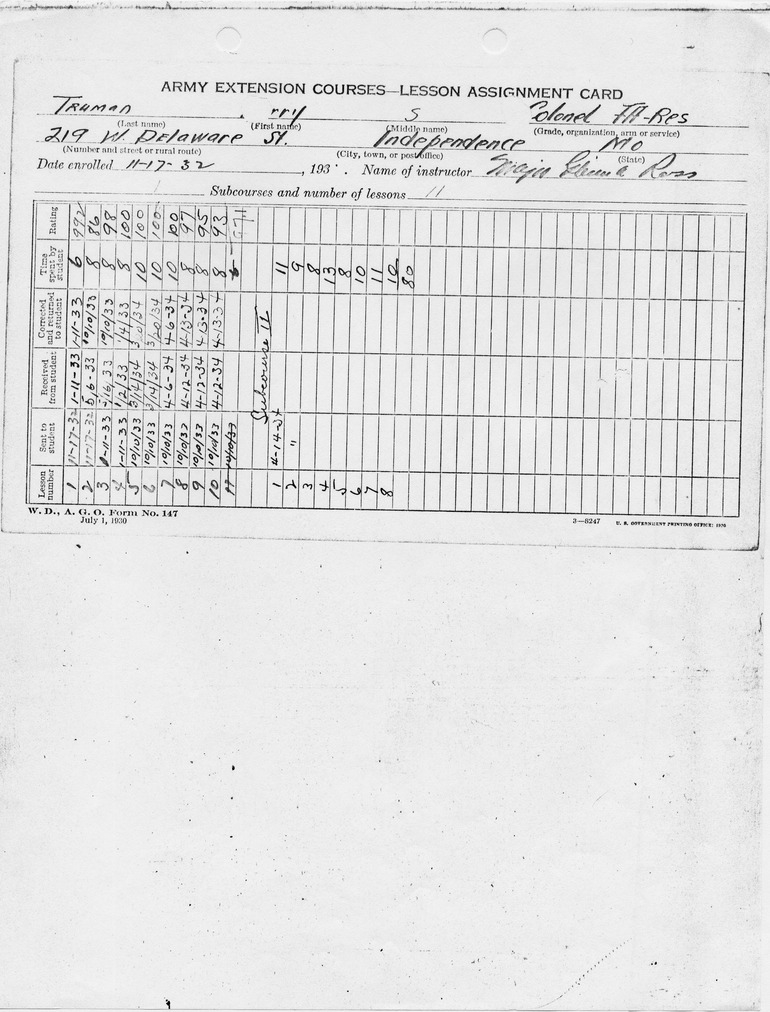 ARMY EXTENSION COURSES—LESSON ASSIGNMENT CARD
Truman , rry S Colonel FA-Res
(Last name) (First name) (Middle name) (Grade, organization, arm or service)
219 W. Delaware St. Independence Mo
(Number and street or rural route) (City, town, or post office) (State)
Date enrolled 11-17-32 , 193 . Name of instructor Major Ross
Subcourses and number of lessons 11
Rating 992 86 98 100 100 100 100 97 95 93
Time spent by student 6 8 8 8 10 10 10 8 8 8 6 11 9 8 13 8 10 11 10 80
Corrected and returned to student 1-11-33 10/10/33 10/10/33 1/4/33 3/10/34 3/20/34 4-6-34 4-13-34 4-13-34 4-13-34
Received from student 1-11-33 5/6-33 /16/33 1/2/33 3/14/34 3/14/34 4-6-34 4-12-34 4-12-34 4-12-34 Subcourse II
Sent to student 11-17-32 11-17-32 1-11-33 1-11-33 10/10/33 10/10/33 10/10/33 10/10/33 10/10/33 10/10/33 10/10/33 4-14-34 "
Lesson number 1 2 3 4 5 6 7 8 9 10 11 1 2 3 4 5 6 7 8
W. D., A. G. O. Form No. 147
July 1, 1930
3—5247 U. S. GOVERNMENT PRINTING OFFICE: 1930